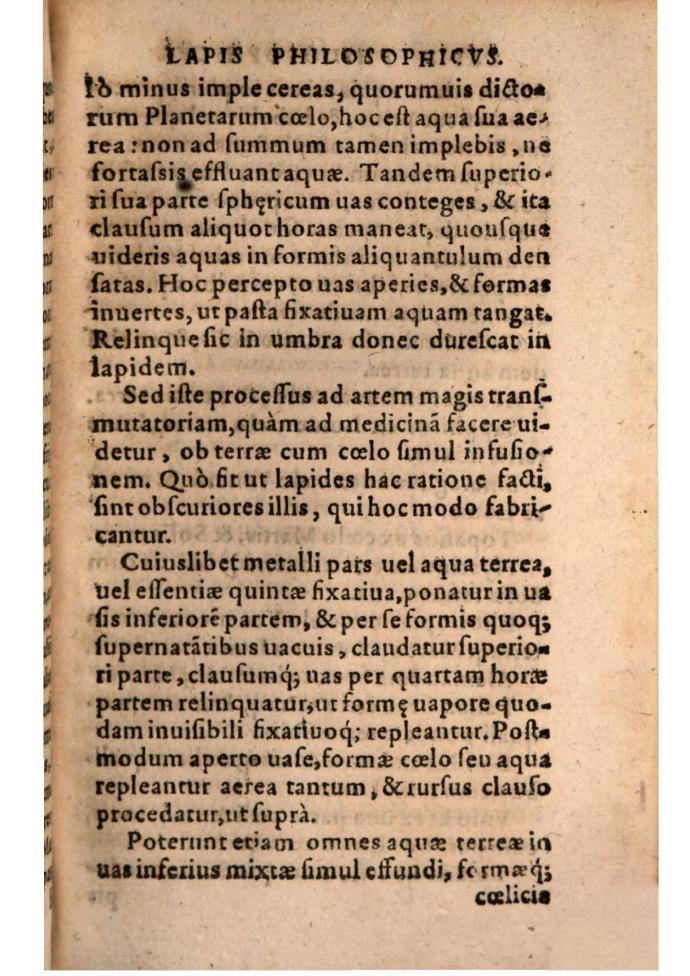 LAPIS PHILOSOPHICVS.
lò minus imple cereas, quorumuis dicto-
rum Planetarum cœlo, hoc est aqua sua ae-
rea: non ad summum tamen implebis, ne
fortassis effluant aquæ. Tandem superio-
ri sua parte sphęricum uas conteges, & ita
clausum aliquot horas maneat, quousque
uideris aquas in formis aliquantulum den
satas. Hoc percepto uas aperies, & formas
inuertes, ut pasta fixatiuam aquam tangat.
Relinque sic in umbra donec durescat in
lapidem.
Sed iste processus ad artem magis trans-
mutatoriam, quàm ad medicinã facere ui-
detur, ob terræ cum cœlo simul infusio-
nem. Quò fit ut lapides hac ratione facti,
sint obscuriores illis, qui hoc modo fabri-
cantur.
Cuiuslibet metalli pars uel aqua terrea,
uel essentiæ quintæ fixatiua, ponatur in ua
sis inferiorẽ partem, & per se formis quoq;
supernatãtibus uacuis, claudatur superio-
ri parte, clausumq́; uas per quartam horæ
partem relinquatur, ut formę uapore quo-
dam inuisibili fixatiuoq́; repleantur. Post-
modum aperto uase, formæ cœlo seu aqua
repleantur aerea tantum, & rursus clauso
procedatur, ut suprà.
Poterunt etiam omnes aquæ terreæ in
uas inferius mixtæ simul effundi, formæq́;
cœlicis